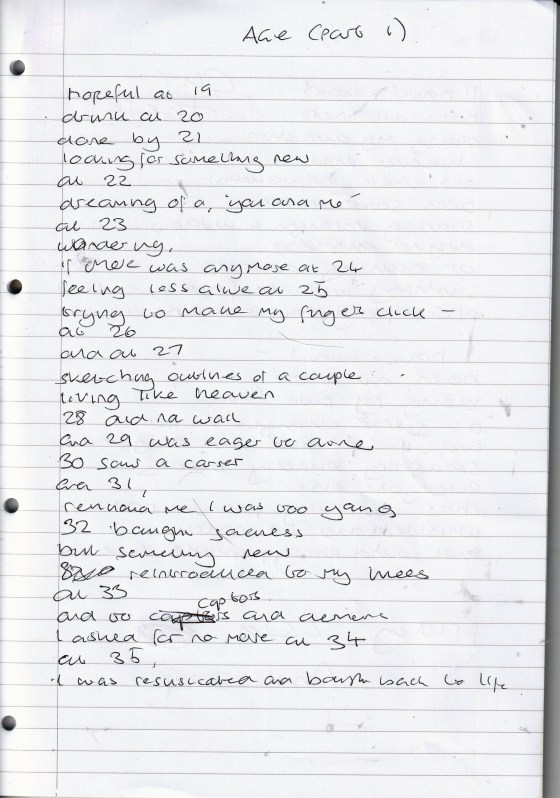 Age (part 1)
Hopeful at 19
drunk at 20
done by 21
looking for something new
at 22
dreaming of a, 'you and me'
at 23
wondering,
if there was anymore at 24
feeling less alive at 25
trying to make my fingers click –
at 26
and at 27
sketching outlines of a couple
living like heaven
28 did na wait
and 29 was eager to arrive
30 saw a career
and 31,
remind me I was too young
32 bought sadness
but something new
reintroduced to my knees
at 33
and to captors and demons
I asked for no more at 34
at 35,
I was resusicated and bought back to life